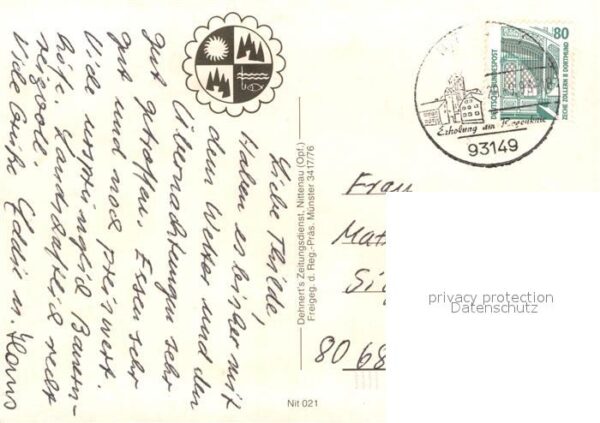 Liebe Thilde,
Haben es bisher mit
dem Wetter und den
Übernachtungen sehr
gut getroffen. Essen sehr
gut und noch preiswert.
Viele ursprünglich Bauern-
höfe. Landschaftlich recht
reizvoll.
Viele Grüße Eddie u. Hans
Dehnert's Zeitungsdienst, Nittenau (Opf.)
Freigeg. d. Reg.-Präs. Münster 3417/76
Nit 021
80
DEUTSCHE BUNDESPOST
ZECHE ZOLLERN II DORTMUND
Erholung am Regenknie
93149
Frau
Mat
Sig
8068
privacy protection
Datenschutz